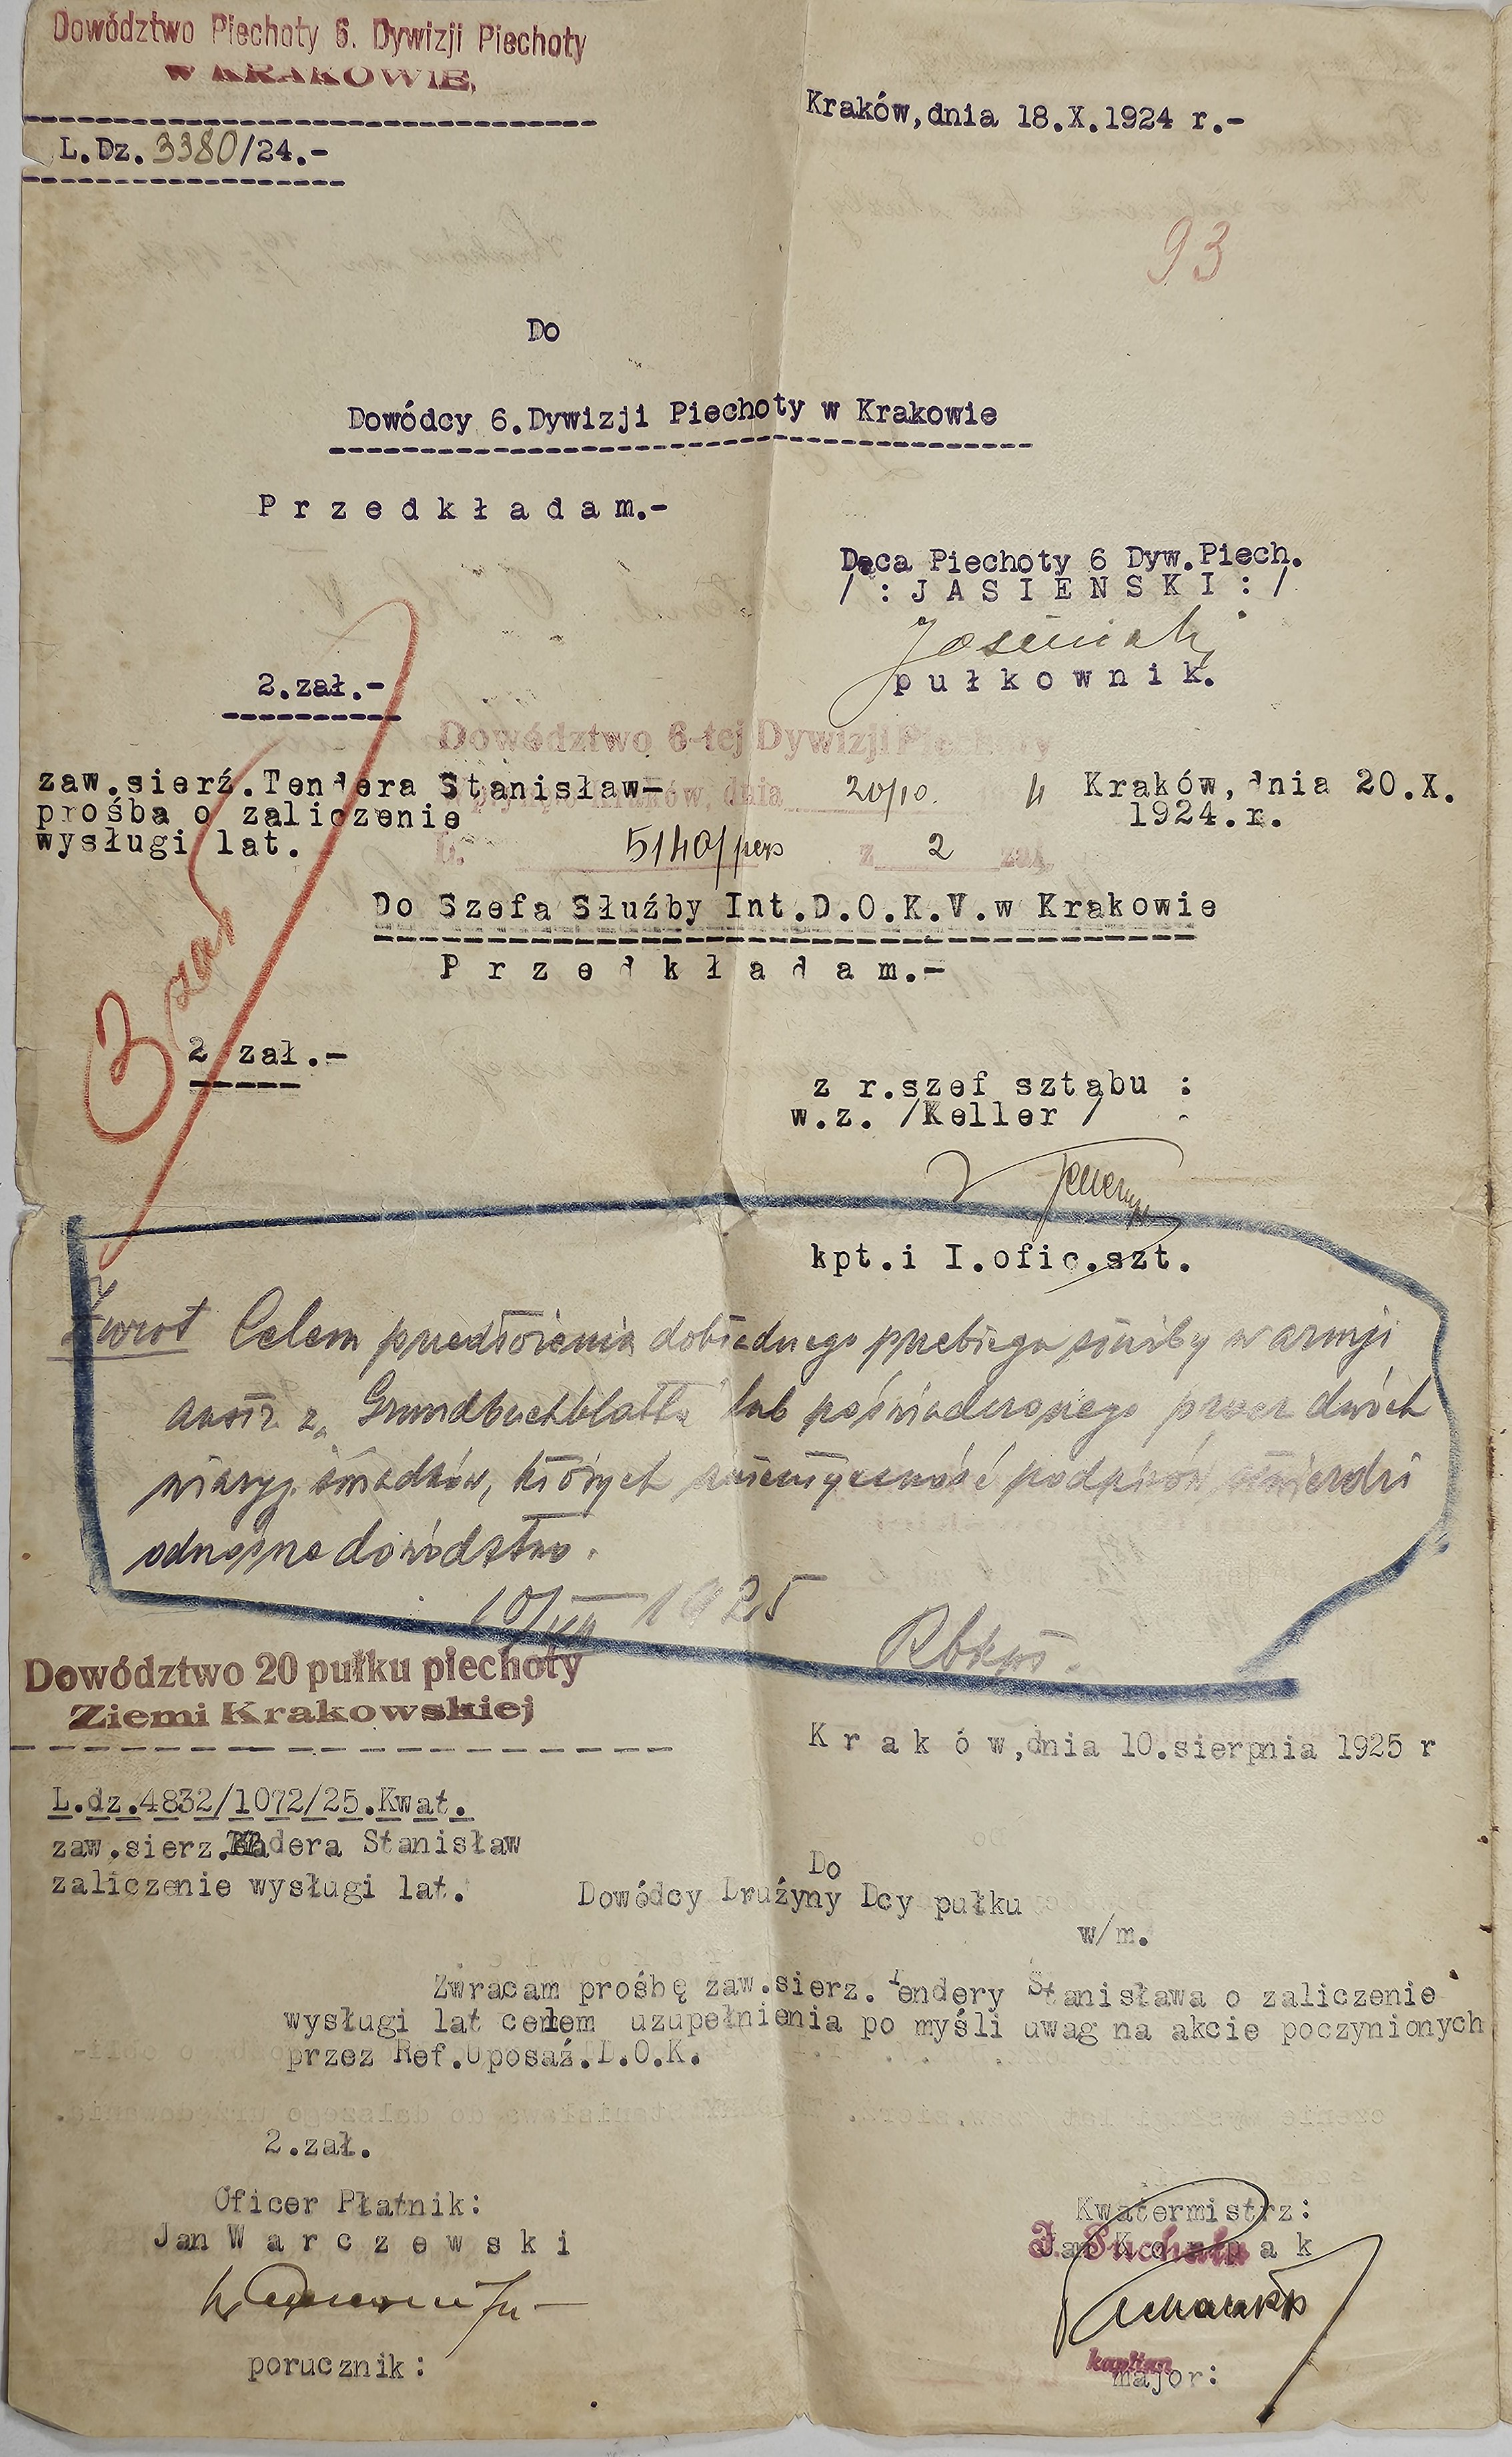 Dowództwo Piechoty 6. Dywizji Piechoty
W KRAKOWIE,
Kraków, dnia 18.X.1924 r.-
L.Dz. 3380/24.-
93
Do
Dowódcy 6.Dywizji Piechoty w Krakowie
P r z e d k ł a d a m.-
Dąca Piechoty 6 Dyw.Piech.
/ : J A S I E N S K I : /
p u ł k o w n i k.
2.zał.-
Dowództwo 6-tej Dywizji Piechoty
zaw.sierź.Tendera Stanisław-
prośba o zaliczenie
wysługi lat.
Kraków, dnia 20/10. 4
Kraków, dnia 20.X.
1924.r.
L. 5140/pers z 2 zał.
Do Szefa Służby Int.D.O.K.V.w Krakowie
P r z e d k ł a d a m.-
3 zał
2 zał.-
z r.szef sztabu :
w.z. /Keller /
kpt.i I.ofic.szt.
Zwrot Celem przedłożenia dokładnego przebiegu służby w armji
austr. z „Grundbuchblattu" lub poświadczonego przez dwóch
wiaryg. świadków, których autentyczność podpisów stwierdzi
odnośne dowództwo.
10/VII 1925
Dowództwo 20 pułku piechoty
Ziemi Krakowskiej
K r a k ó w,dnia 10.sierpnia 1925 r
L.dz.4832/1072/25.Kwat.
zaw.sierz.Tendera Stanisław
zaliczenie wysługi lat.
Do
Dowódcy Drużyny Dcy pułku
w/m.
Zwracam prośbę zaw.sierz. Tendery Stanisława o zaliczenie
wysługi lat celem uzupełnienia po myśli uwag na akcie poczynionych
przez Ref.Uposaź.D.O.K.
2.zał.
Oficer Płatnik:
Jan W a r c z e w s k i
porucznik:
Kwatermistrz:
kapitan
major: